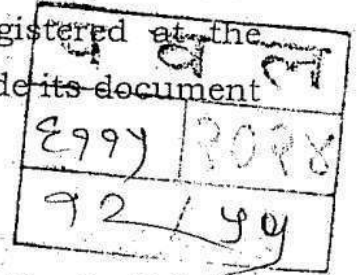 gistered at the
प व ल
de its document
६११५ २०१४
१२ / ५५